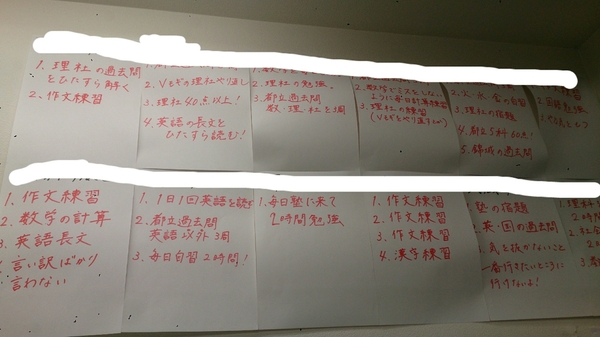 1. 理社の過去問
をひたすら解く
2. 作文練習
2. Vもぎの理社やり直し
3. 理社40点以上!
4. 英語の長文を
ひたすら読む!
2. 理社の勉強。
3. 都立過去問
数・理・社を3周
2. 数学でミスをしな
ように毎日計算練習
3. 理社の練習
3. 理社の宿題
4. 都立5科60点!
5. 錦城の過去問
1. 作文練習
2. 数学の計算
3. 英語長文
言い訳ばかり
言わない
1. 1日1回英語を読む
2. 都立過去問
英語以外3周
3. 毎日自習2時間!
1. 毎日塾に来て
2時間勉強
1. 作文練習
2. 作文練習
3. 作文練習
4. 漢字練習
塾の宿題
英・国の過去問
気を抜かないこと
一番行きたいところに
行けないよ!
1. 理科
2時間
2. 社会
2時
3.